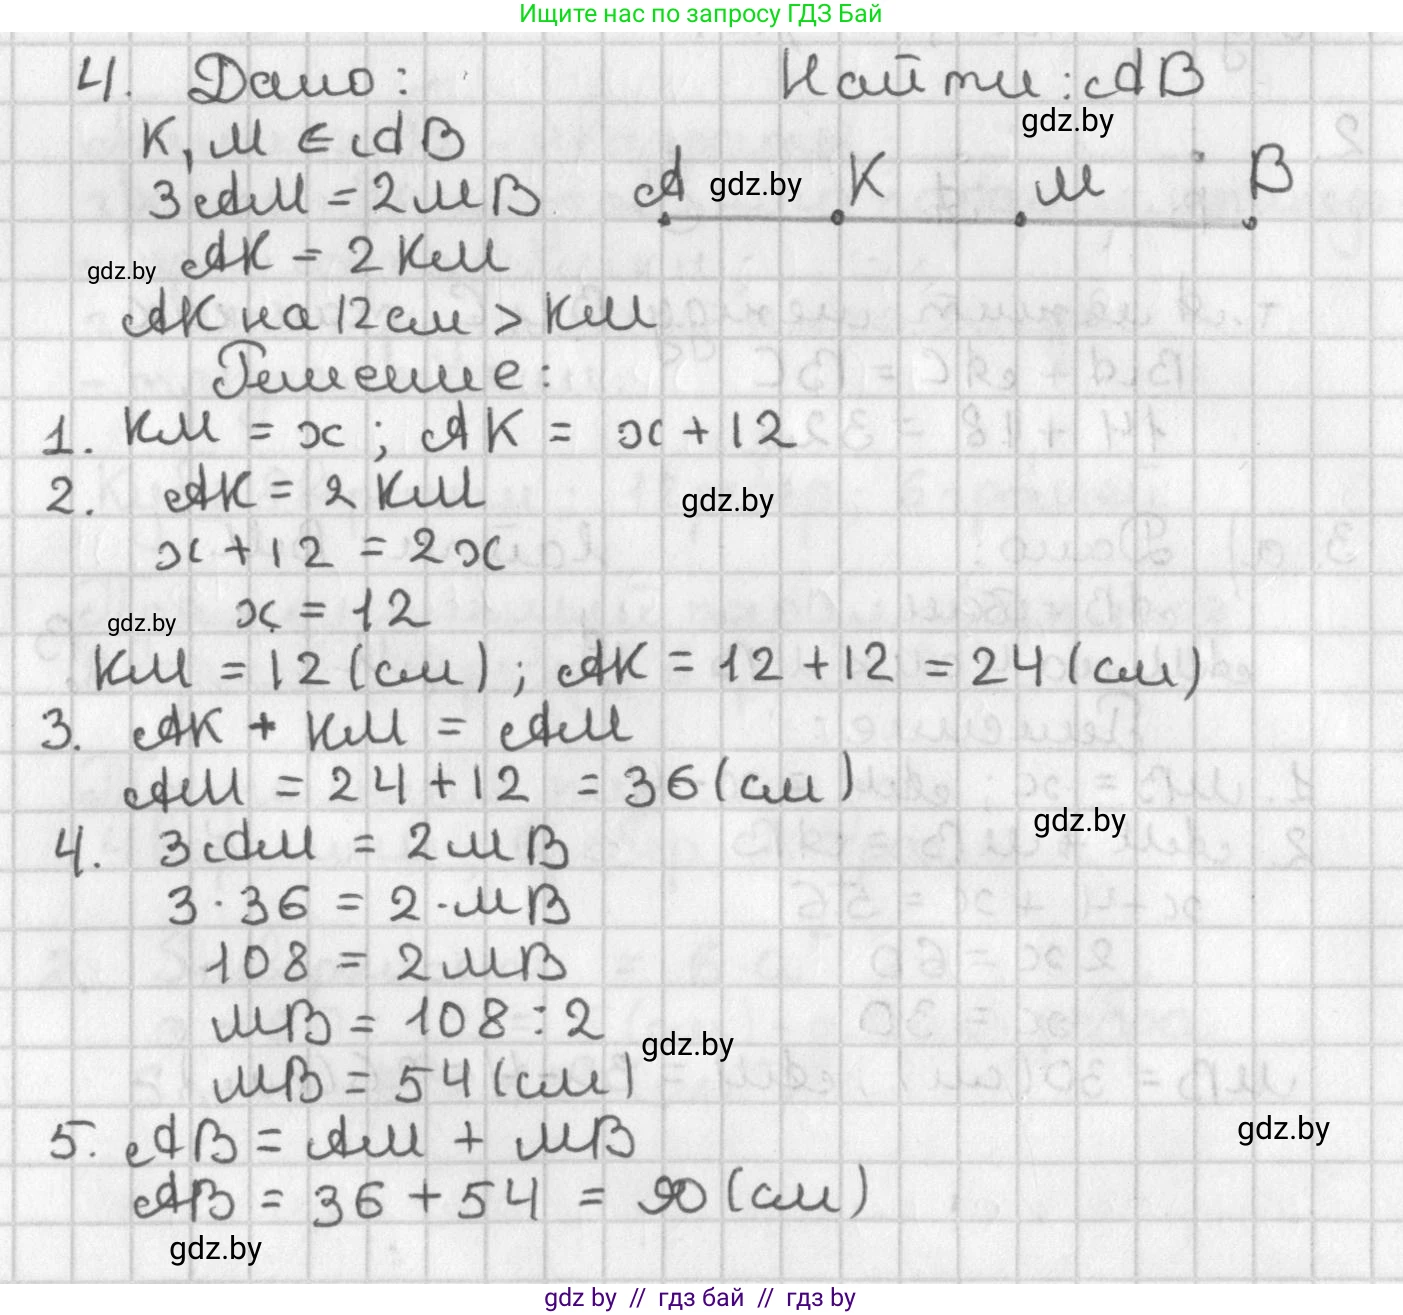 Ищите нас по запросу ГДЗ Бай
4. Дано: Найти: AB
gdz.by
K, M ∈ AB
3AM = 2MB
A gdz.by K M B
gdz.by AK = 2KM
AK на 12см > KM
Решение:
1. KM = x; AK = x + 12
2. AK = 2KM
gdz.by
x + 12 = 2x
gdz.by x = 12
KM = 12 (см); AK = 12 + 12 = 24 (см)
3. AK + KM = AM
AM = 24 + 12 = 36 (см)
gdz.by
4. 3AM = 2MB
3 · 36 = 2 · MB
108 = 2MB
MB = 108 : 2
gdz.by
MB = 54 (см)
gdz.by
5. AB = AM + MB
AB = 36 + 54 = 90 (см)
gdz.by
gdz by // гдз бай // гдз by